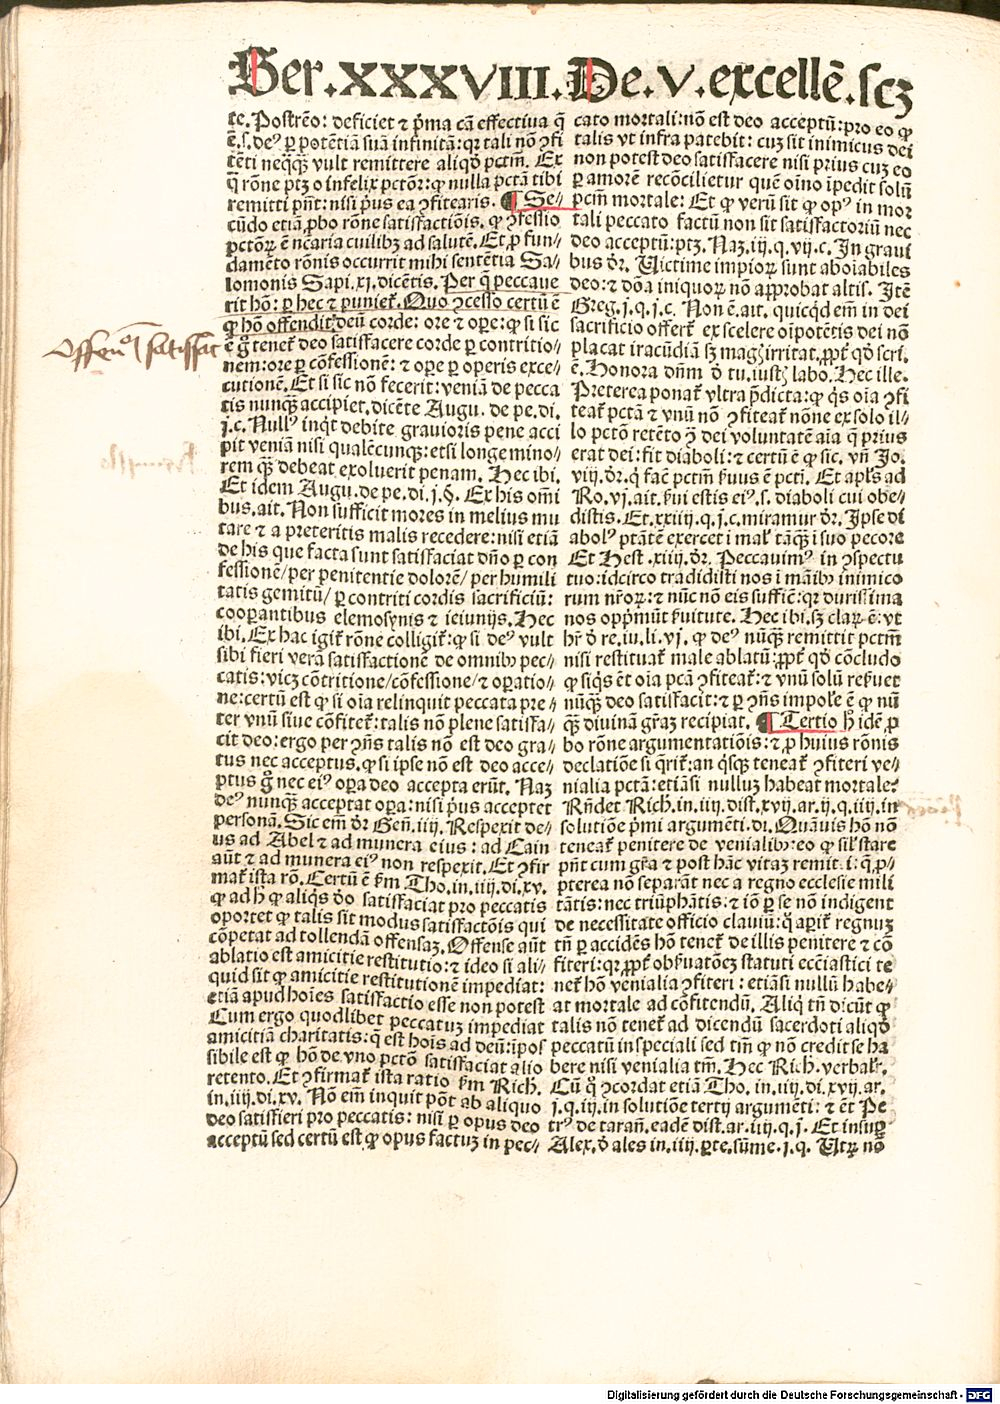 Ser.XXXVIII.De.V.excellẽ.scꝫ
te. Postrẽo: deficiet ⁊ p̃ma cã effectiua q̃
ẽ.s.deꝰ ꝑ potẽtiã suã infinitã: qꝛ tali nõ ↄfi
tẽti neqꝗꝫ vult remittere aliqđ pctm̃. Ex
q̃ rõne ptꝫ o infelix pctõꝛ: ꝙ nulla pctã tibi
remitti pñt: nisi pꝰus ea ↄfitearis. ¶ Se⸗
cũdo etiã ꝓbo rõne satisfactiõis. ꝙ ↄfessio
pctõꝝ ẽ ncãria cuilibꝫ ad salutẽ. Et ꝓ fun⸗
damẽto rõnis occurrit mihi sentẽtia Sa⸗
lomonis Sapi.xi.dicẽtis. Per q̃ peccaue
rit hõ: ꝑ hec ⁊ puniet᷑. Quo ↄcesso certũ ẽ
ꝙ hõ offendit deũ corde: ore ⁊ oꝑe: ꝙ si sic
ẽ g̊ tenet᷑ deo satisfacere corde ꝑ contritio⸗
nem: ore ꝑ cõfessionẽ: ⁊ oꝑe ꝑ operis exce⸗
cutionẽ. Et si sic nõ fecerit: veniã de pecca
tis nunqꝫ accipiet. dicẽte Augu. de pe.di.
j.c. Nullꝰ inqͥt debite grauioris pene acci
pit veniã nisi qualẽcunqꝫ: etsi longe mino⸗
rem qꝫ debeat exoluerit penam. Hec ibi.
Et idem Augu.de pe.di.j.§. Ex his om̃i
bus.ait. Non sufficit mores in melius mu
tare ⁊ a preteritis malis recedere: nisi etiã
de his que facta sunt satisfaciat dño ꝑ con
fessionẽ/ per penitentie dolorẽ/ per humili
tatis gemitũ/ ꝑ contriti cordis sacrificiũ:
cooꝑantibus elemosynis ⁊ ieiunijs. Hec
ibi. Ex hac igit᷑ rõne colligit᷑: ꝙ si deꝰ vult
sibi fieri verã satisfactionẽ de omnibꝫ pec⸗
catis: vicꝫ cõtritione/ cõfessione/ ⁊ oꝑatio⸗
ne: certũ est ꝙ si oĩa relinquit peccata pre⸗
ter vnũ siue cõfitet᷑: talis nõ plene satisfa⸗
cit deo: ergo per ↄñs talis nõ est deo gra⸗
tus nec acceptus. ꝙ si ipse nõ est deo acce⸗
ptus g̊ nec eiꝰ oꝑa deo accepta erũt. Naꝫ
deꝰ nunqꝫ acceptat oꝑa: nisi pꝰus acceptet
personã. Sic em̃ dꝛ Geñ.iiij. Respexit de⸗
us ad Abel ⁊ ad munera eius: ad Cain
aũt ⁊ ad munera eiꝰ non respexit. Et ↄfir
mat᷑ ista rõ. Certũ ẽ ẜm Tho.in.iiij.di.xv.
ꝙ ad h̊ ꝙ aliqͥs đo satisfaciat pro peccatis
oportet ꝙ talis sit modus satisfactõis qui
cõpetat ad tollendã offensaꝫ. Offense aũt
ablatio est amicitie restitutio: ⁊ ideo si ali⸗
quid sit ꝙ amicitie restitutionẽ impediat:
etiã apud hoĩes satisfactio esse non potest
Cum ergo quodlibet peccatuꝫ impediat
amicitiã charitatis: q̃ est hoĩs ad deũ: ĩpos
sibile est ꝙ hõ de vno pctõ satisfaciat alio
retento. Et ↄfirmat᷑ ista ratio ẜm Rich.
in.iiij.di.xv. Nõ em̃ inquit põt ab aliquo
deo satisfieri pro peccatis: nisi ꝑ opus deo
acceptũ sed certũ est ꝙ opus factuꝫ in pec⸗
cato mortali: nõ est deo acceptũ: pro eo ꝙ
talis vt infra patebit: cuꝫ sit inimicus dei
non potest deo satisfacere nisi prius cuꝫ eo
ꝑ amorẽ recõcilietur quẽ oĩno ĩpedit solũ
pctm̃ mortale: Et ꝙ verũ sit ꝙ opꝰ in mor
tali peccato factũ non sit satisfactoriũ nec
deo acceptũ: ptꝫ. Naꝫ.iij.q.vij.c. In graui
bus dꝛ. Victime impioꝝ sunt aboĩabiles
deo: ⁊ dõa iniquoꝝ nõ aꝓprobat altis. Itẽ
Greg.j.q.j.c. Non ẽ.ait. quicqͥd em̃ in dei
sacrificio offert᷑ ex scelere oĩpotẽtis dei nõ
placat iracũdiã sꝫ magꝭ irritat. ꝓpt᷑ qđ scri.
ẽ. Honora dñm đ tu.iustꝭ labo. Hec ille.
Preterea ponat᷑ vltra p̃dicta: ꝙ qͥs oĩa ↄfi
teat᷑ pctã ⁊ vnũ nõ ↄfiteat᷑ nõne ex solo il⸗
lo pctõ retẽto ꝯ dei voluntatẽ aĩa q̃ prius
erat dei: fit diaboli: ⁊ certũ ẽ ꝙ sic. vñ Jo.
viij.dꝛ. q̃ fac̃ pctm̃ ẜuus ẽ pcti. Et apl̃s ad
Ro.vj.ait. ẜui estis eiꝰ.s. diaboli cui obe⸗
distis. Et.xxiiij.q.j.c.miramur dꝛ. Ipse di
abolꝰ ptãtẽ exercet i mal᷑ tãqꝫ i suo pecore
Et Hest.xiiij.dꝛ. Peccauimꝰ in ↄspectu
tuo: idcirco tradidisti nos ĩ mãibꝫ inimico
rum nr̃oꝝ: ⁊ nũc nõ eis suffic̃: qꝛ durissima
nos opp̃mũt ẜuitute. Hec ibi.sꝫ claꝝ ẽ: vt
hr̃ đ re.iu.li.vj. ꝙ deꝰ nũqꝫ remittit pctm̃
nisi restituat᷑ male ablatũ: ꝓpt᷑ qđ cõcludo
ꝙ siqͥs ẽt oĩa pcã ↄfiteat᷑: ⁊ vnũ solũ reẜuet
nũqꝫ deo satisfacit: ⁊ ꝑ ↄñs impole ẽ ꝙ nũ
qꝫ diuinã gr̃aꝫ recipiat. ¶ Tertio h̊ idẽ ꝓ
bo rõne argumentatiõis: ⁊ ꝓ huius rõnis
declatiõe si q̃rit᷑: an qͥsqꝫ teneat᷑ ↄfiteri ve⸗
nialia pctã: etiãsi nulluꝫ habeat mortale:
Rñdet Rich.in.iiij.dist.xvij.ar.ij.q.iij.in
solutiõe p̃mi argumẽti.di. Quãuis hõ nõ
teneat᷑ penitere de venialibꝫ: eo ꝙ sil᷑ stare
pñt cum gr̃a ⁊ post hãc vitaꝫ remit̃i: q̃ ꝓ⸗
pterea nõ separãt nec a regno ecclesie mili
tãtis: nec triũphãtis: ⁊ iõ ꝑ se nõ indigent
de necessitate officio clauiũ: q̃ aꝑit᷑ regnuꝫ
tñ ꝑ accidẽs hõ tenet᷑ de illis penitere ⁊ cõ
fiteri: qꝛ ꝓpt᷑ obẜuatõeꝫ statuti ecc̃iastici te
net᷑ hõ venialia ↄfiteri: etiãsi nullũ habe⸗
at mortale ad cõfitendũ. Aliq̃ tñ dicũt ꝙ
talis nõ tenet᷑ ad dicendũ sacerdoti aliqđ
peccatũ in speciali sed tm̃ ꝙ nõ credit se ha
bere nisi venialia tm̃. Hec Rich.verbalr̃.
Cũ q̊ ↄcordat etiã Tho.in.iiij.di.xvij.ar.
j.q.iij.in solutiõe tertij argumẽti: ⁊ ẽt Pe
trꝰ de tarañ.eadẽ dist.ar.iij.q.j. Et insuꝑ
Alex.đ ales in.iiij.ꝑte.sũme.j.q. Vtꝝ nõ
Digitalisierung gefördert durch die Deutsche Forschungsgemeinschaft - DFG